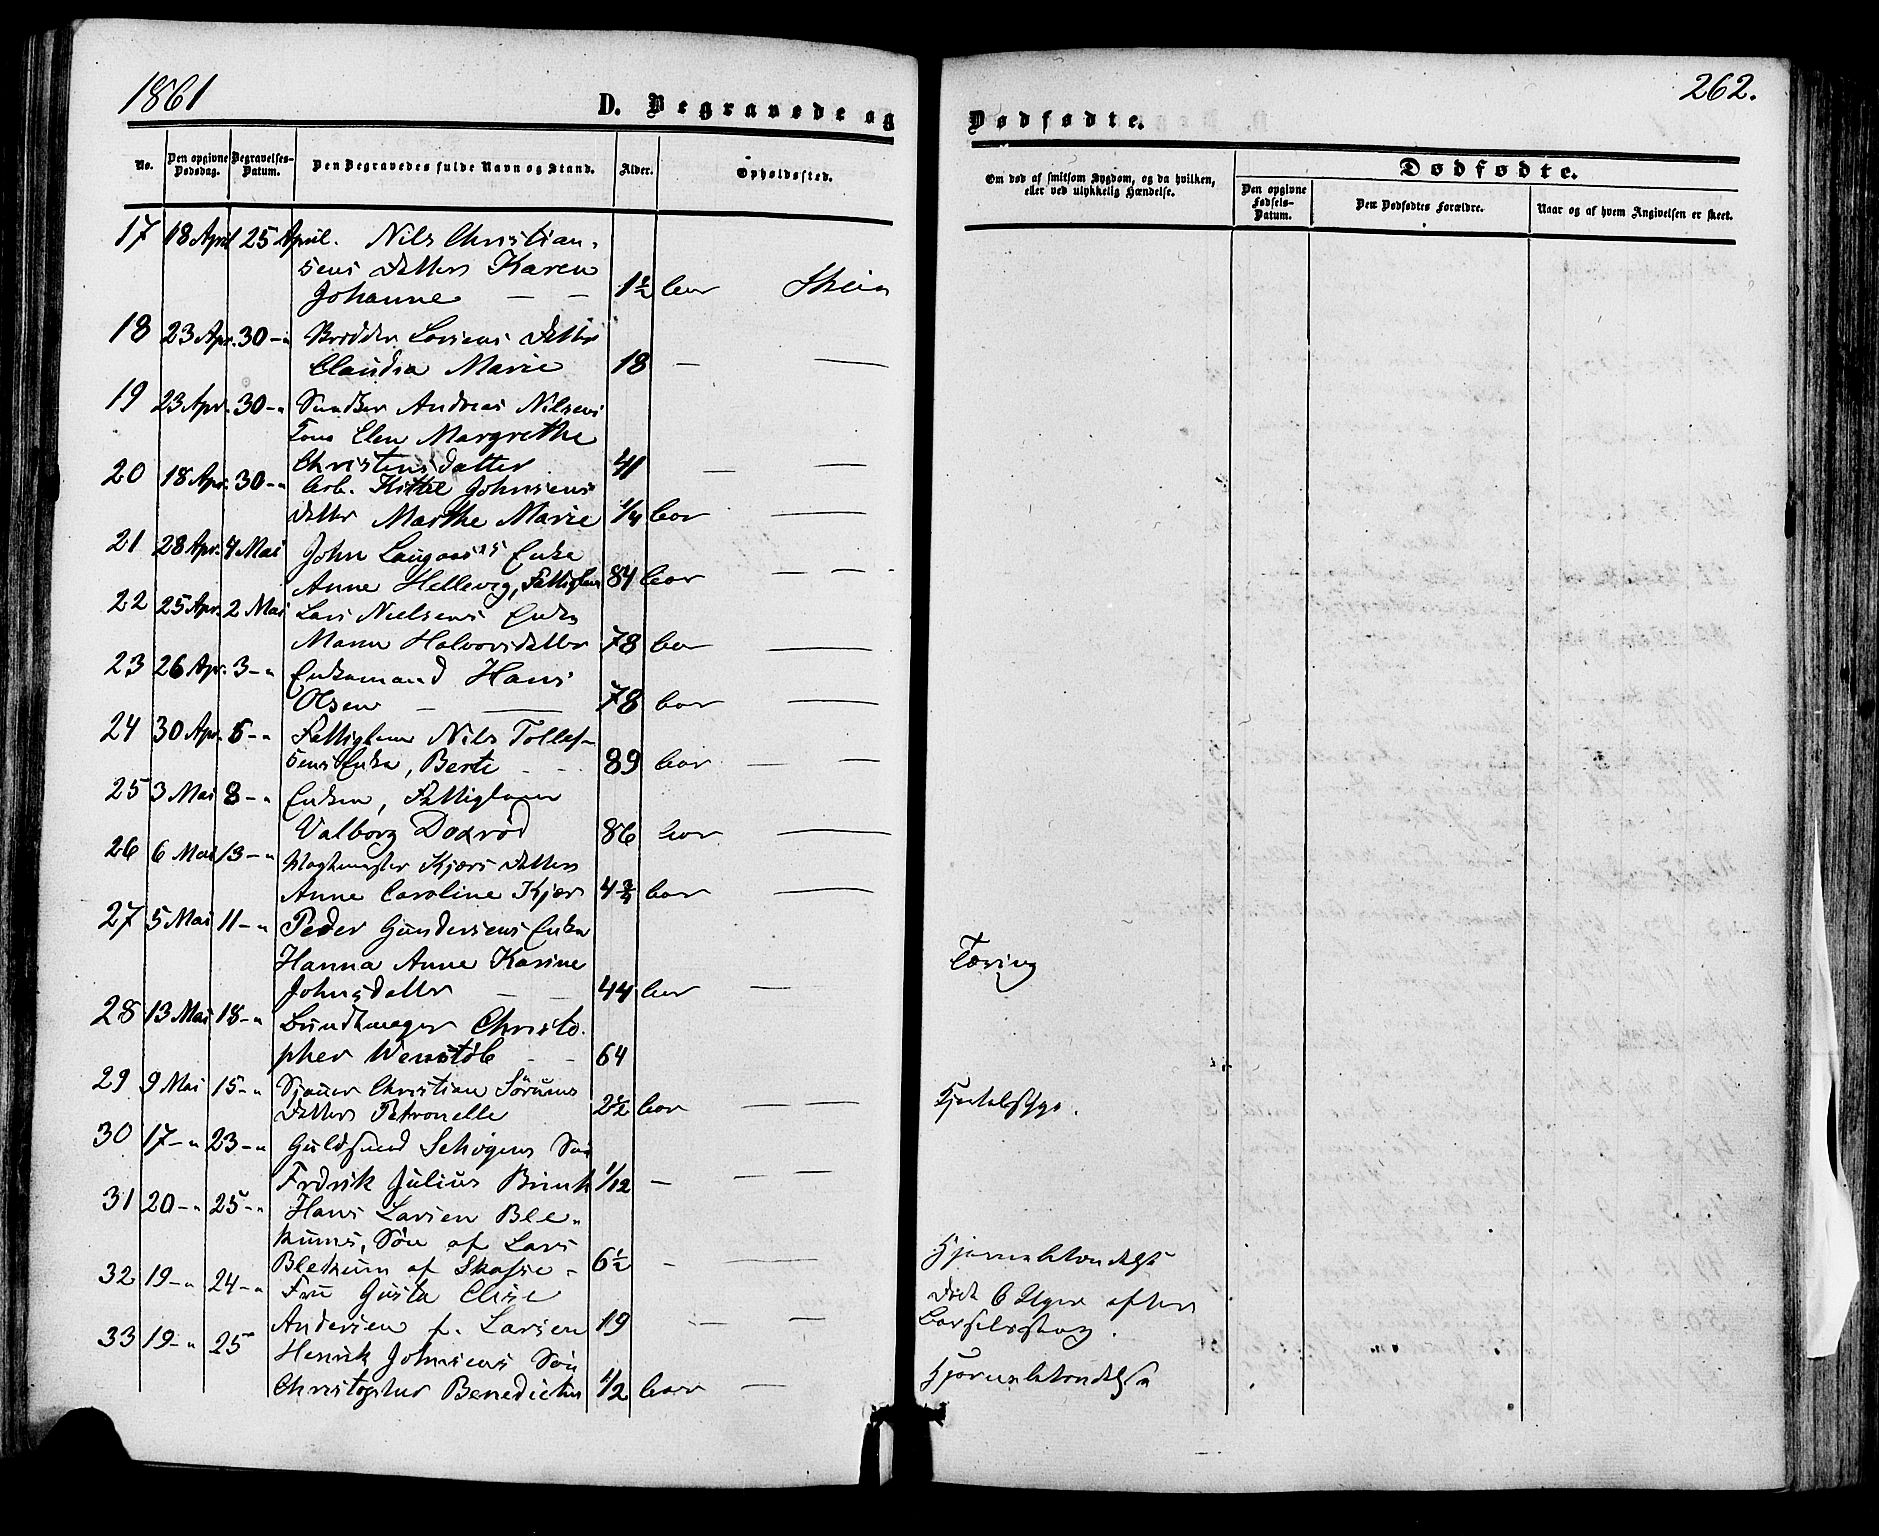 1861
D. Begravede og
No.
Den opgivne Dødsdag.
Begravelses-Datum.
Den Begravedes fulde Navn og Stand.
Alder.
Opholdssted.
17 18 April 25 April. Nils Christian-
sens Datter Karen
Johanne — — 1½ Skien
18 23 Apr. 30 -"- Larsens Datter
Claudia Marie 18 — —
19 23 Apr. 30 -"- Andreas Nilsens
Kone Elen Margrethe
Christensdatter 41 — —
20 18 Apr. 30 -"- Arb. Kittel Johnsens
Datter Marthe Marie 1/4 —
21 28 Apr. 4 Mai John Enke
Anne Hellevig, Fattiglem 84 — —
22 25 Apr. 2 Mai Lars Nielsens Enke
Maren Halvorsdatter 78 —
23 26 Apr. 3 -"- Enkemand Hans
Olsen — — 78 —
24 30 Apr. 6 -"- Fattiglem Nils Tollef-
sens Enke, Berte - - 89 — —
25 3 Mai 8 -"- Enken, Fattiglem
Valborg Doxrød 86 —
26 6 Mai 13 -"- Vagtmester Kjærs Datter
Anne Caroline Kjær 4¾ —
27 5 Mai 11 -"- Peder Gundersens Enke
Hanna Anne Karine
Johnsdatter — — 44 —
28 13 Mai 18 -"- Bundtmager Christo-
pher Wenstøb - - 64
29 9 Mai 15 -"- Sjauer Christian Sörums
Datter Petronelle 2½ — —
30 17 -"- 23 -"- Guldsmed Søn
Fredrik Julius 1/12 — — —
31 20 -"- 25 -"- Hans Larsen Ble-
kums, Søn af Lars
Blekum af - 6½ - —
32 19 -"- 24 -"- Fru Gusta Elise
Andersen f. Larsen 19 — —
33 19 -"- 25 Henrik Johnsens Søn
Christopher 1/2 —
262.
Dødfødte.
Om død af smitsom Sygdom, og da hvilken,
eller ved ulykkelig Hændelse.
Dødfødte.
Den opgivne Fødsels-Datum.
Den Dødfødtes Forældre.
Naar og af hvem Angivelsen er skeet.
Tæring
Kjertelsyge.
Hjernebetændelse
Død 6 Uger efter
Barselseng.
Hjernebetændelse